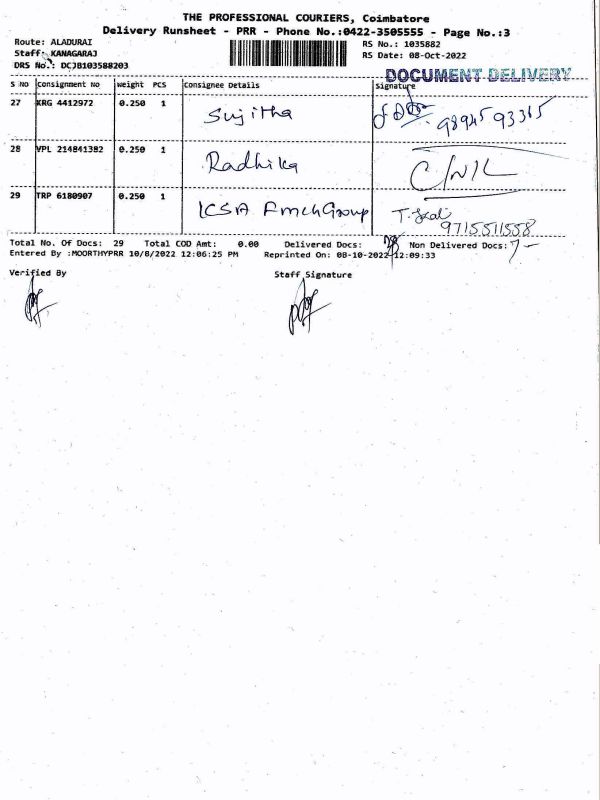 THE PROFESSIONAL COURIERS, Coimbatore
Delivery Runsheet - PRR - Phone No.:0422-3505555 - Page No.:3
Route: ALADURAI
Staff: KANAGARAJ
DRS No.: DCJB103588203
RS No.: 1035882
RS Date: 08-Oct-2022
DOCUMENT DELIVERY
S No Consignment No Weight PCS Consignee Details Signature
27 KRG 4412972 0.250 1 Sujitha
28 VPL 214841382 0.250 1 Radhika C/NIL
29 TRP 6180907 0.250 1 ICSA Group
9715511558
Total No. Of Docs: 29 Total COD Amt: 0.00 Delivered Docs: Non Delivered Docs: 7
Entered By :MOORTHYPRR 10/8/2022 12:06:25 PM Reprinted On: 08-10-2022 12:09:33
Verified By Staff Signature